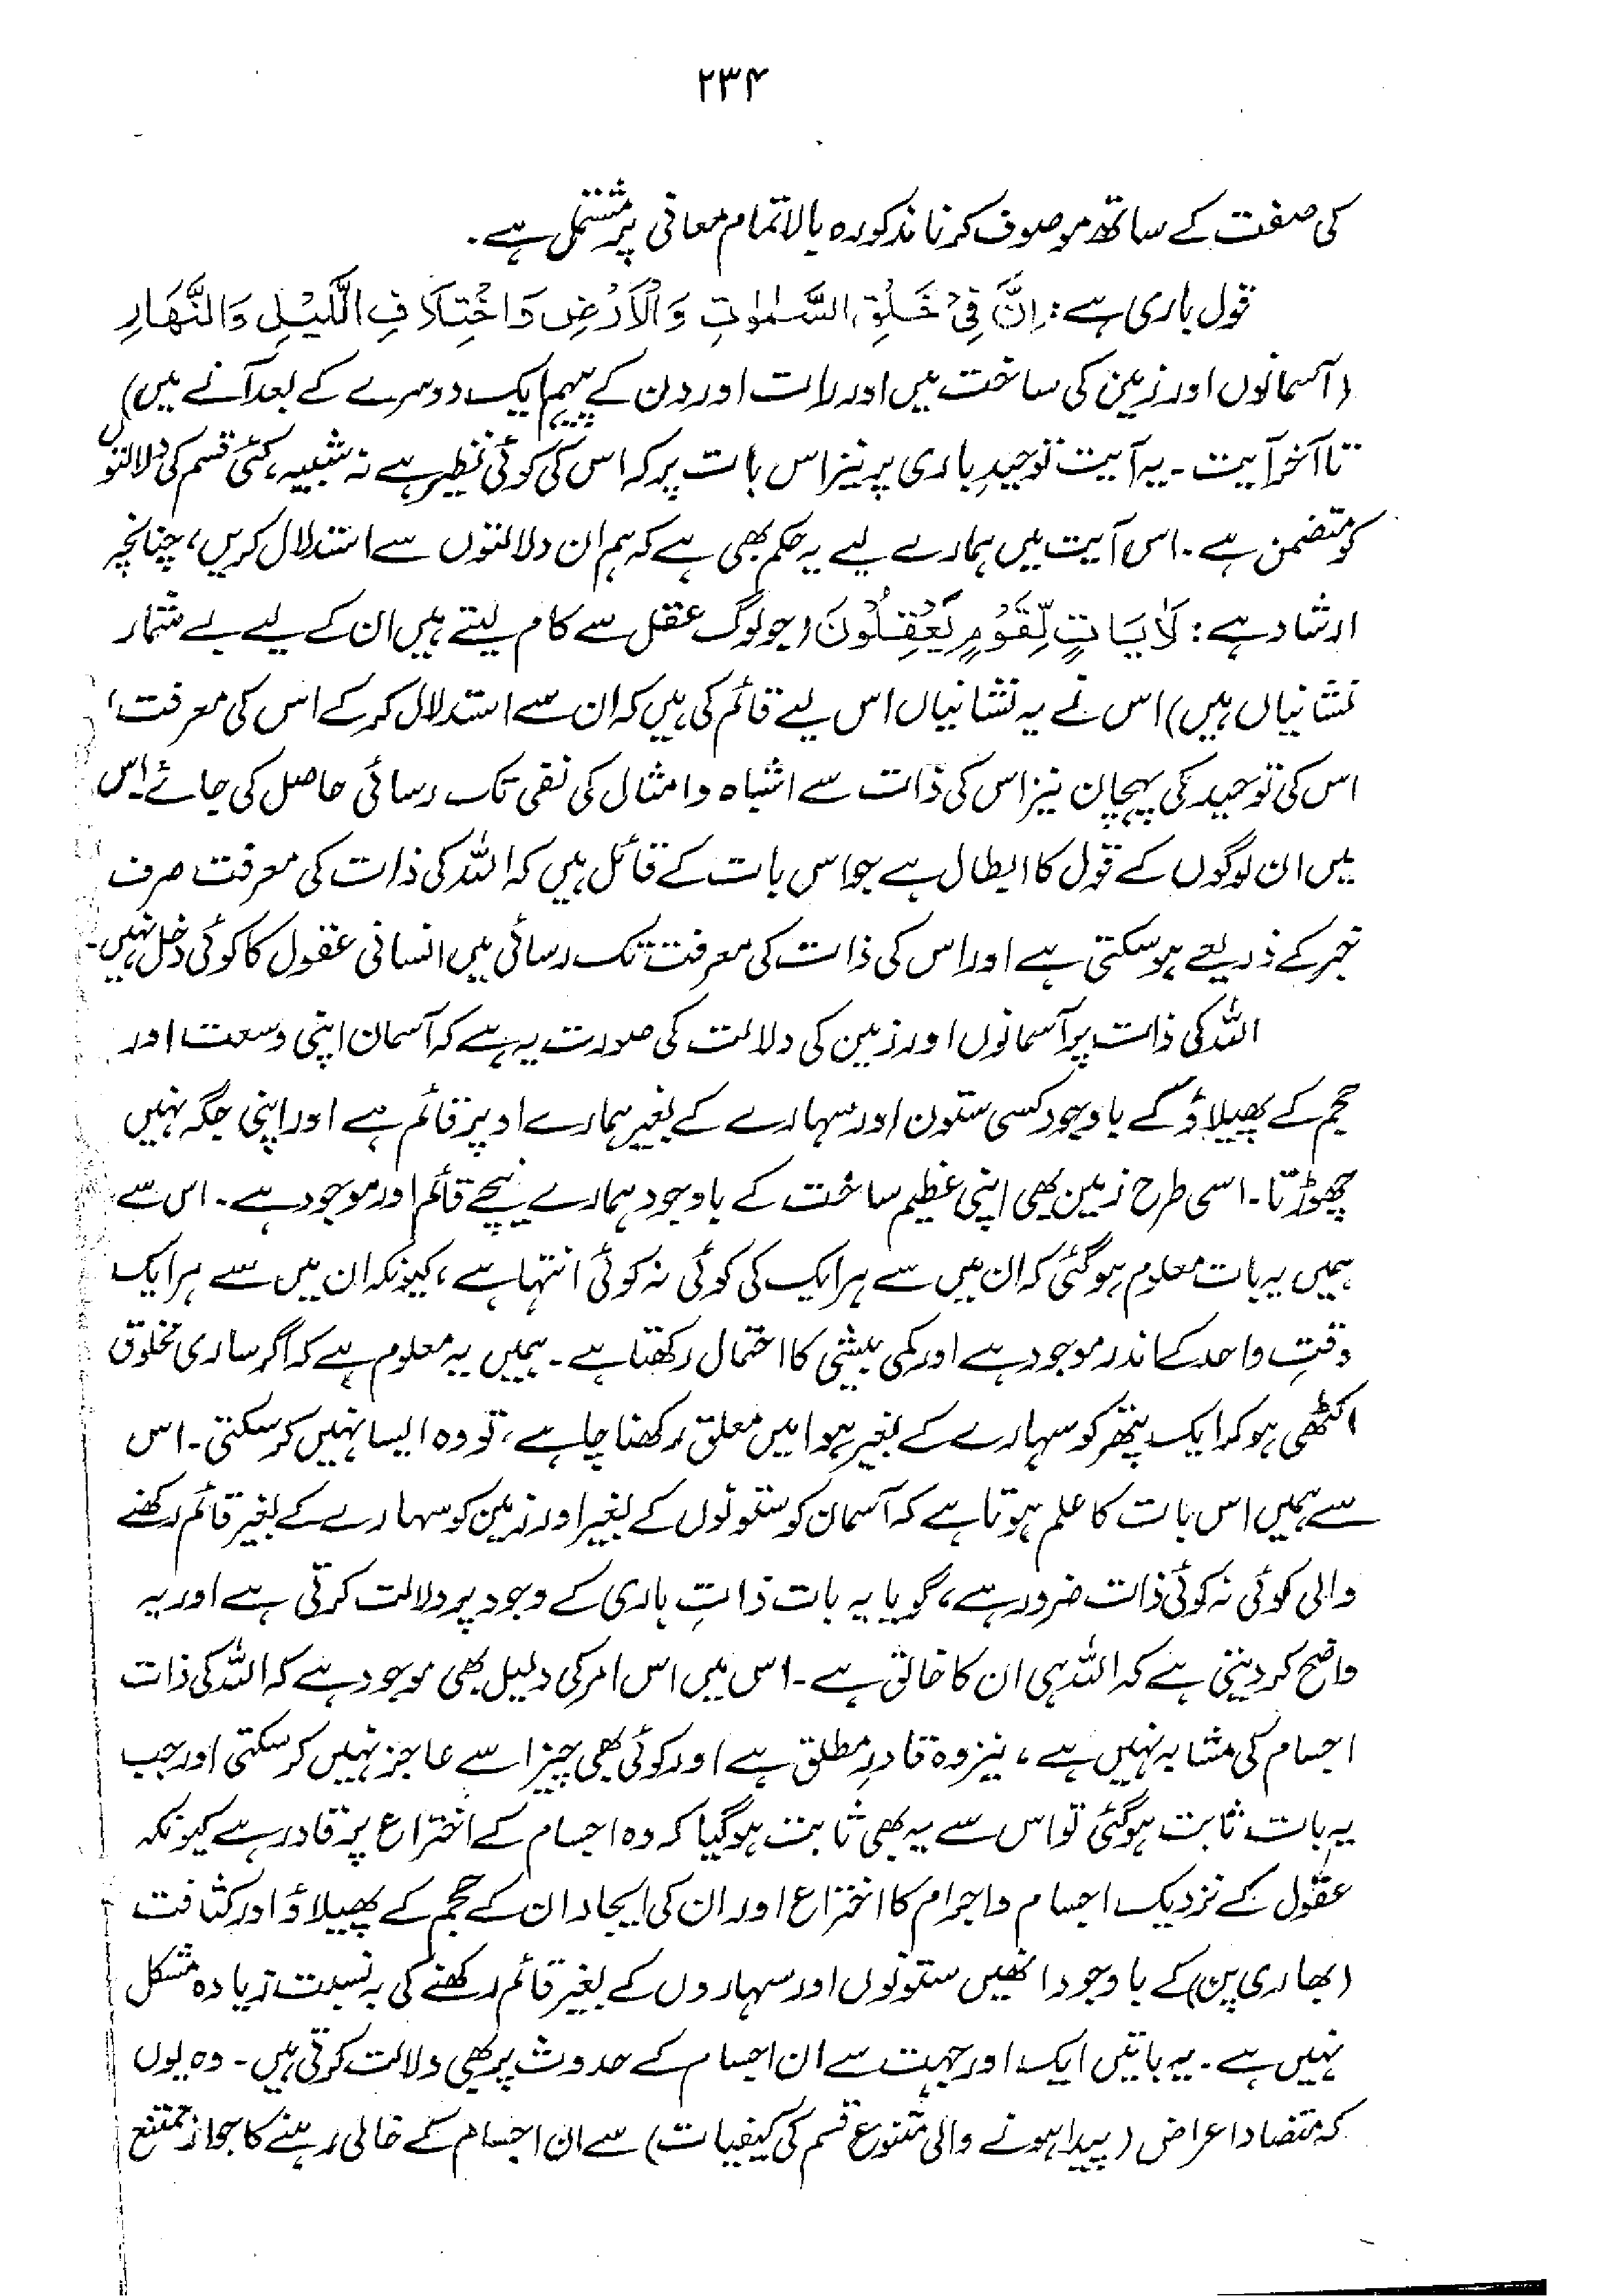 ۲۳۴
کی صفت کے ساتھ موصوف کرنا مذکورہ بالا تمام معانی پر مشتمل ہے۔
قول باری ہے: اِنَّ فِیْ خَلْقِ السَّمٰوٰتِ وَالْاَرْضِ وَاخْتِلَافِ اللَّیْلِ وَالنَّھَارِ
(آسمانوں اور زمین کی ساخت میں اور رات اور دن کے پیہم ایک دوسرے کے بعد آنے میں)
تا آخر آیت۔ یہ آیت توحیدِ باری پر نیز اس بات پر کہ اس کی کوئی نظیر ہے نہ شبیہ، کئی قسم کی دلالتوں
کو متضمن ہے۔ اس آیت میں ہمارے لیے یہ حکم بھی ہے کہ ہم ان دلالتوں سے استدلال کریں، چنانچہ
ارشاد ہے: لَاٰیَاتٍ لِّقَوْمٍ یَّعْقِلُوْنَ (جو لوگ عقل سے کام لیتے ہیں ان کے لیے بے شمار
نشانیاں ہیں) اس نے یہ نشانیاں اس لیے قائم کی ہیں کہ ان سے استدلال کر کے اس کی معرفت،
اس کی توحید کی پہچان نیز اس کی ذات سے اشباہ و امثال کی نفی تک رسائی حاصل کی جائے۔ اس
میں ان لوگوں کے قول کا ابطال ہے جو اس بات کے قائل ہیں کہ اللہ کی ذات کی معرفت صرف
خبر کے ذریعے ہو سکتی ہے اور اس کی ذات کی معرفت تک رسائی میں انسانی عقول کا کوئی دخل نہیں۔
اللہ کی ذات پر آسمانوں اور زمین کی دلالت کی صورت یہ ہے کہ آسمان اپنی وسعت اور
حجم کے پھیلاؤ کے باوجود کسی ستون اور سہارے کے بغیر ہمارے اوپر قائم ہے اور اپنی جگہ نہیں
چھوڑتا۔ اسی طرح زمین بھی اپنی عظیم ساخت کے باوجود ہمارے نیچے قائم اور موجود ہے۔ اس سے
ہمیں یہ بات معلوم ہو گئی کہ ان میں سے ہر ایک کی کوئی نہ کوئی انتہا ہے، کیونکہ ان میں سے ہر ایک
وقتِ واحد کے اندر موجود ہے اور کمی بیشی کا احتمال رکھتا ہے۔ ہمیں یہ معلوم ہے کہ اگر ساری مخلوق
اکٹھی ہو کر ایک پتھر کو سہارے کے بغیر ہوا میں معلق رکھنا چاہے، تو وہ ایسا نہیں کر سکتی۔ اس
سے ہمیں اس بات کا علم ہوتا ہے کہ آسمان کو ستونوں کے بغیر اور زمین کو سہارے کے بغیر قائم رکھنے
والی کوئی نہ کوئی ذات ضرور ہے، گویا یہ بات ذاتِ باری کے وجود پر دلالت کرتی ہے اور یہ
واضح کر دیتی ہے کہ اللہ ہی ان کا خالق ہے۔ اس میں اس امر کی دلیل بھی موجود ہے کہ اللہ کی ذات
اجسام کی مشابہ نہیں ہے، نیز وہ قادرِ مطلق ہے اور کوئی بھی چیز اسے عاجز نہیں کر سکتی اور جب
یہ بات ثابت ہو گئی تو اس سے یہ بھی ثابت ہو گیا کہ وہ اجسام کے اختراع پر قادر ہے کیونکہ
عقول کے نزدیک اجسام و اجرام کا اختراع اور ان کی ایجاد ان کے حجم کے پھیلاؤ اور کثافت
(بھاری پن) کے باوجود انھیں ستونوں اور سہاروں کے بغیر قائم رکھنے کی بہ نسبت زیادہ مشکل
نہیں ہے۔ یہ باتیں ایک اور جہت سے ان اجسام کے حدوث پر بھی دلالت کرتی ہیں۔ وہ یوں
کہ متضاد اعراض (پیدا ہونے والی متنوع قسم کی کیفیات) سے ان اجسام کے خالی رہنے کا جواز ممتنع